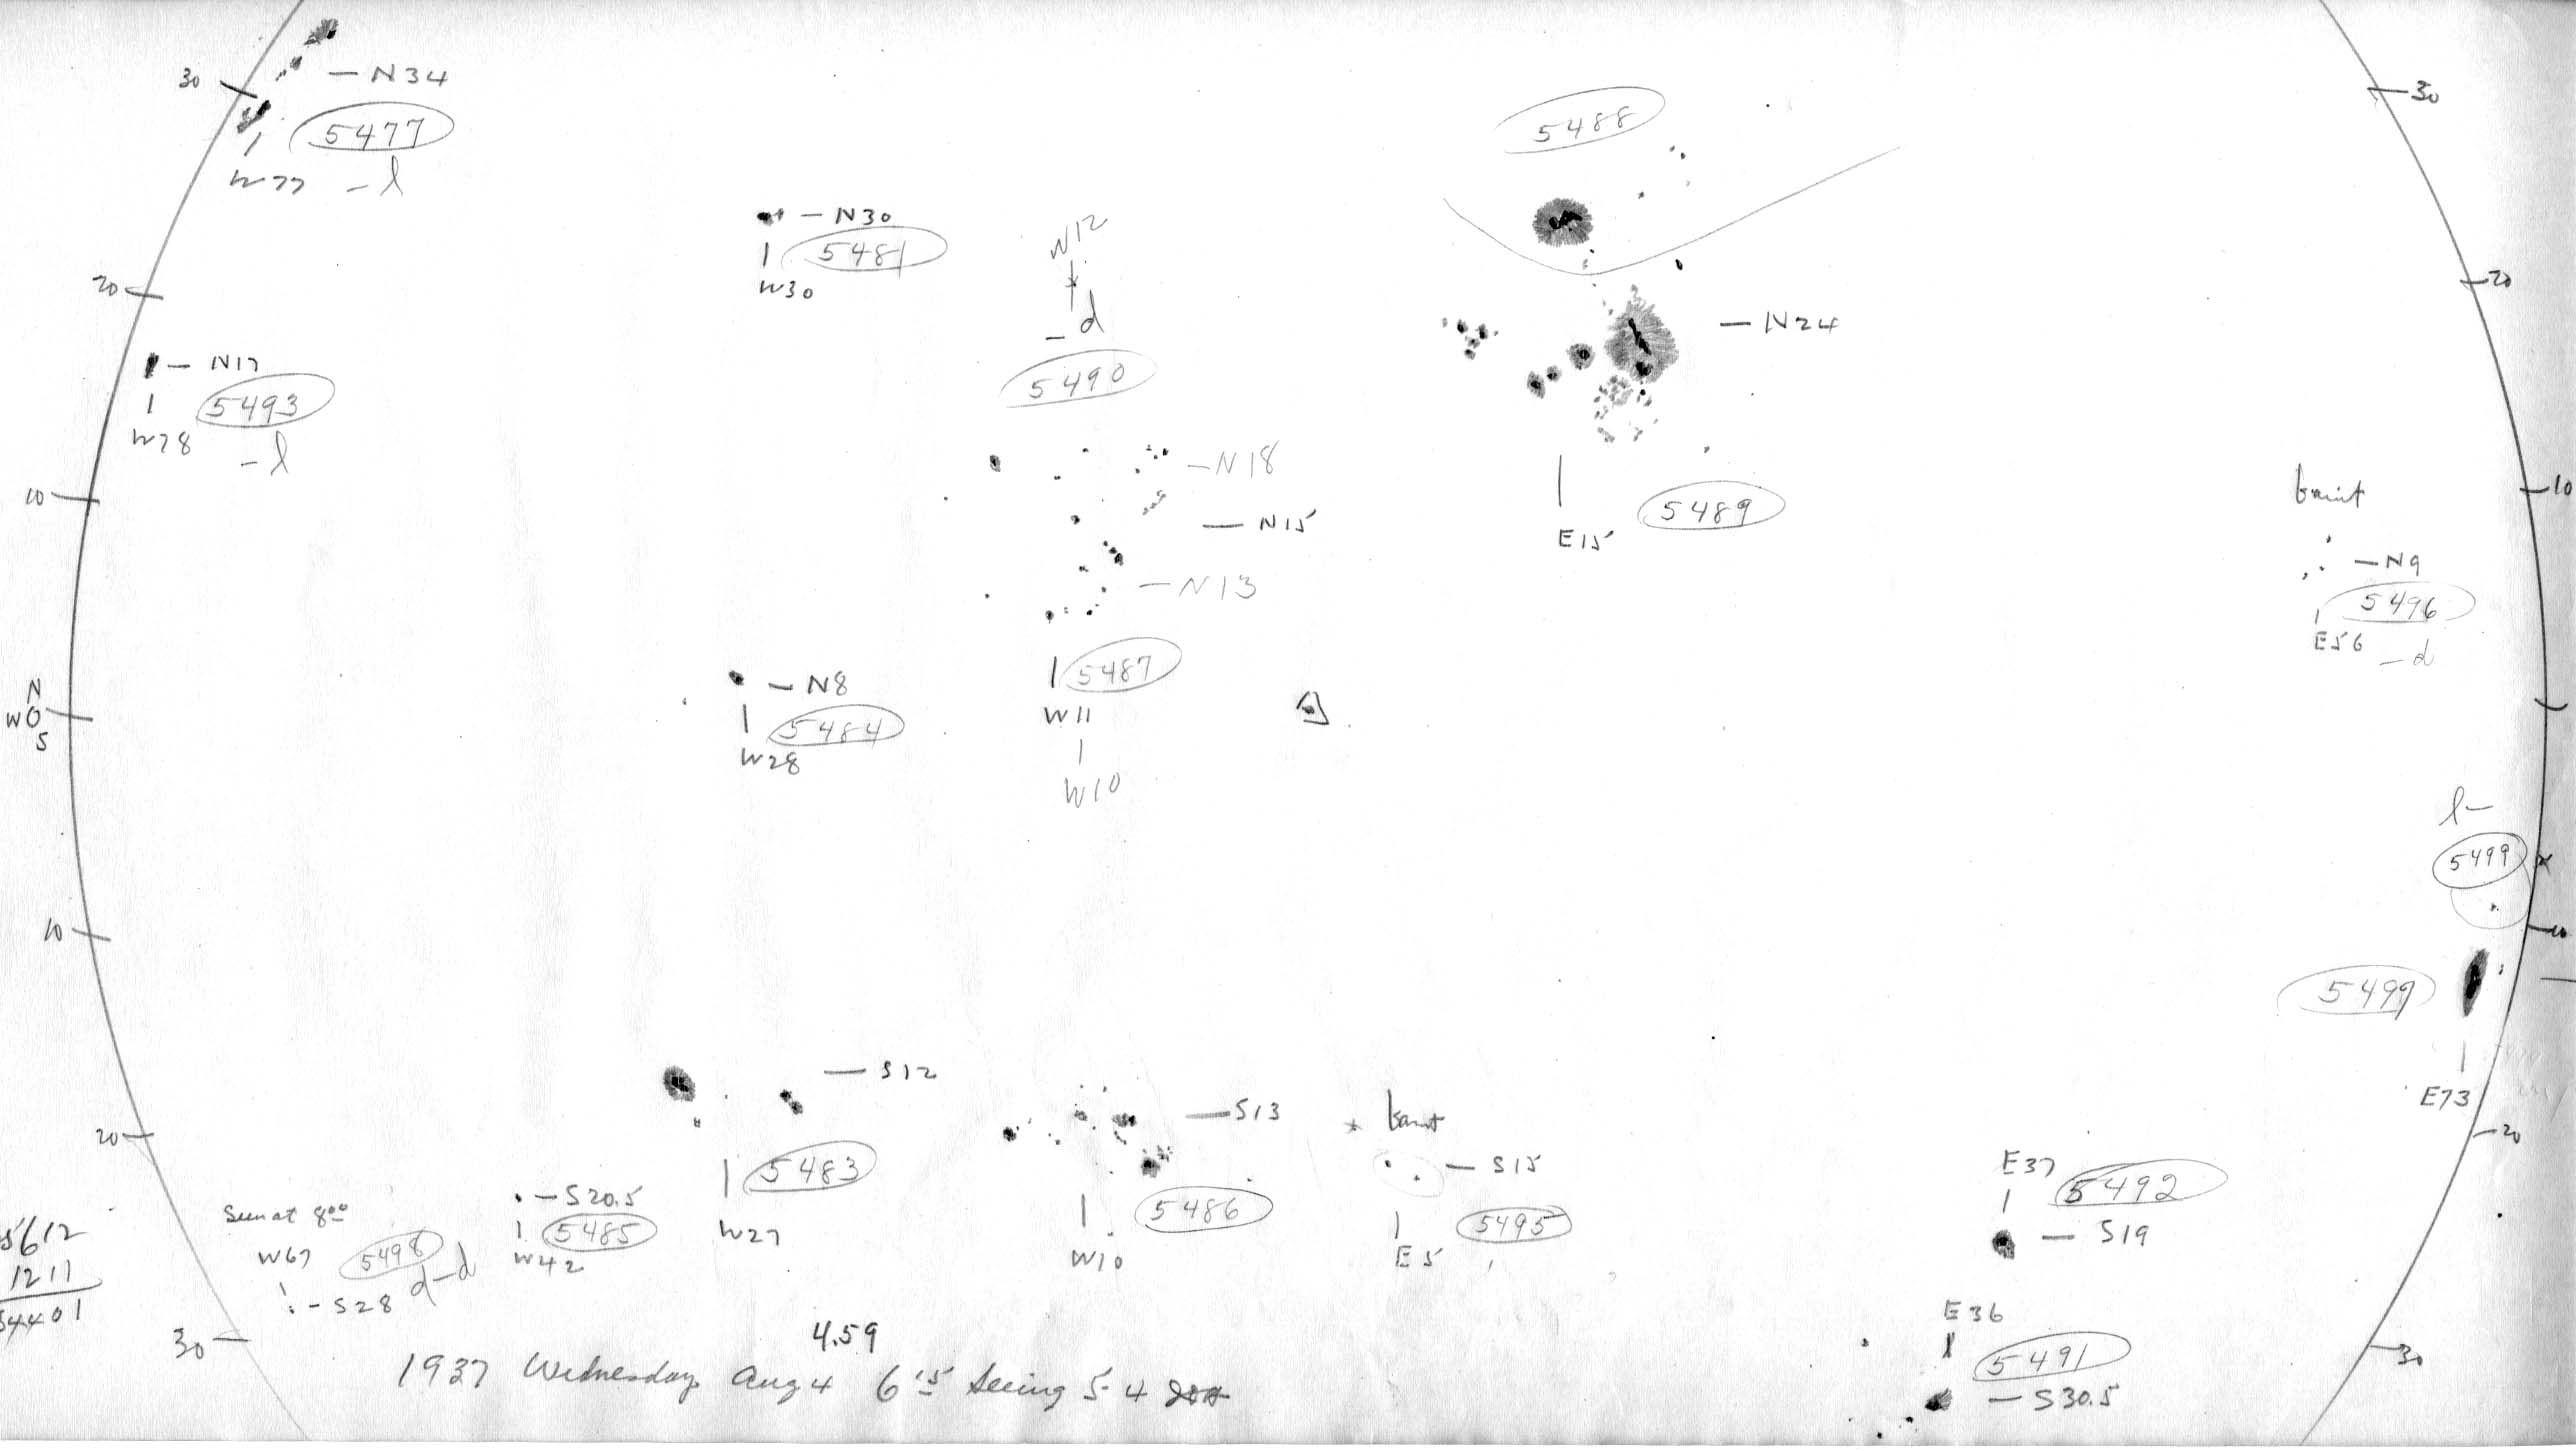 30
— N34
5477
W77 – l
5488
30
— N30
5481
W30
W12
– d
5490
20
20
— N24
— N17
5493
W78
– l
— N18
— N15
— N13
10
10
E15
5489
faint
— N9
5496
E56 – d
— N8
5484
W28
5487
W11
W10
N
W0
S
l –
5499
10
10
5499
E73
— S12
— S13
faint
— S15
20
20
5483
W27
5486
W10
5495
E5
E37
5492
— S19
Seen at 8⁰⁰
W67
5498
d–d
– S28
– S20.5
5485
W42
5612
1211
54401
E36
5491
— S30.5
30
30
4.59
1937 Wednesday Aug 4 6¹⁵ Seeing 5-4